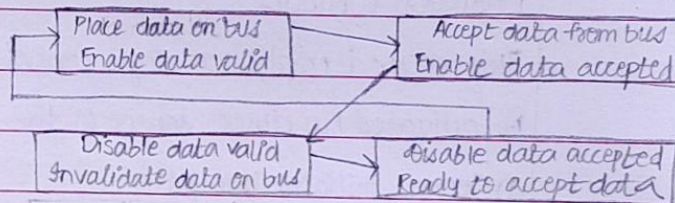 Place data on bus
Enable data valid
Accept data from bus
Enable data accepted
Disable data valid
Invalidate data on bus
Disable data accepted
Ready to accept data